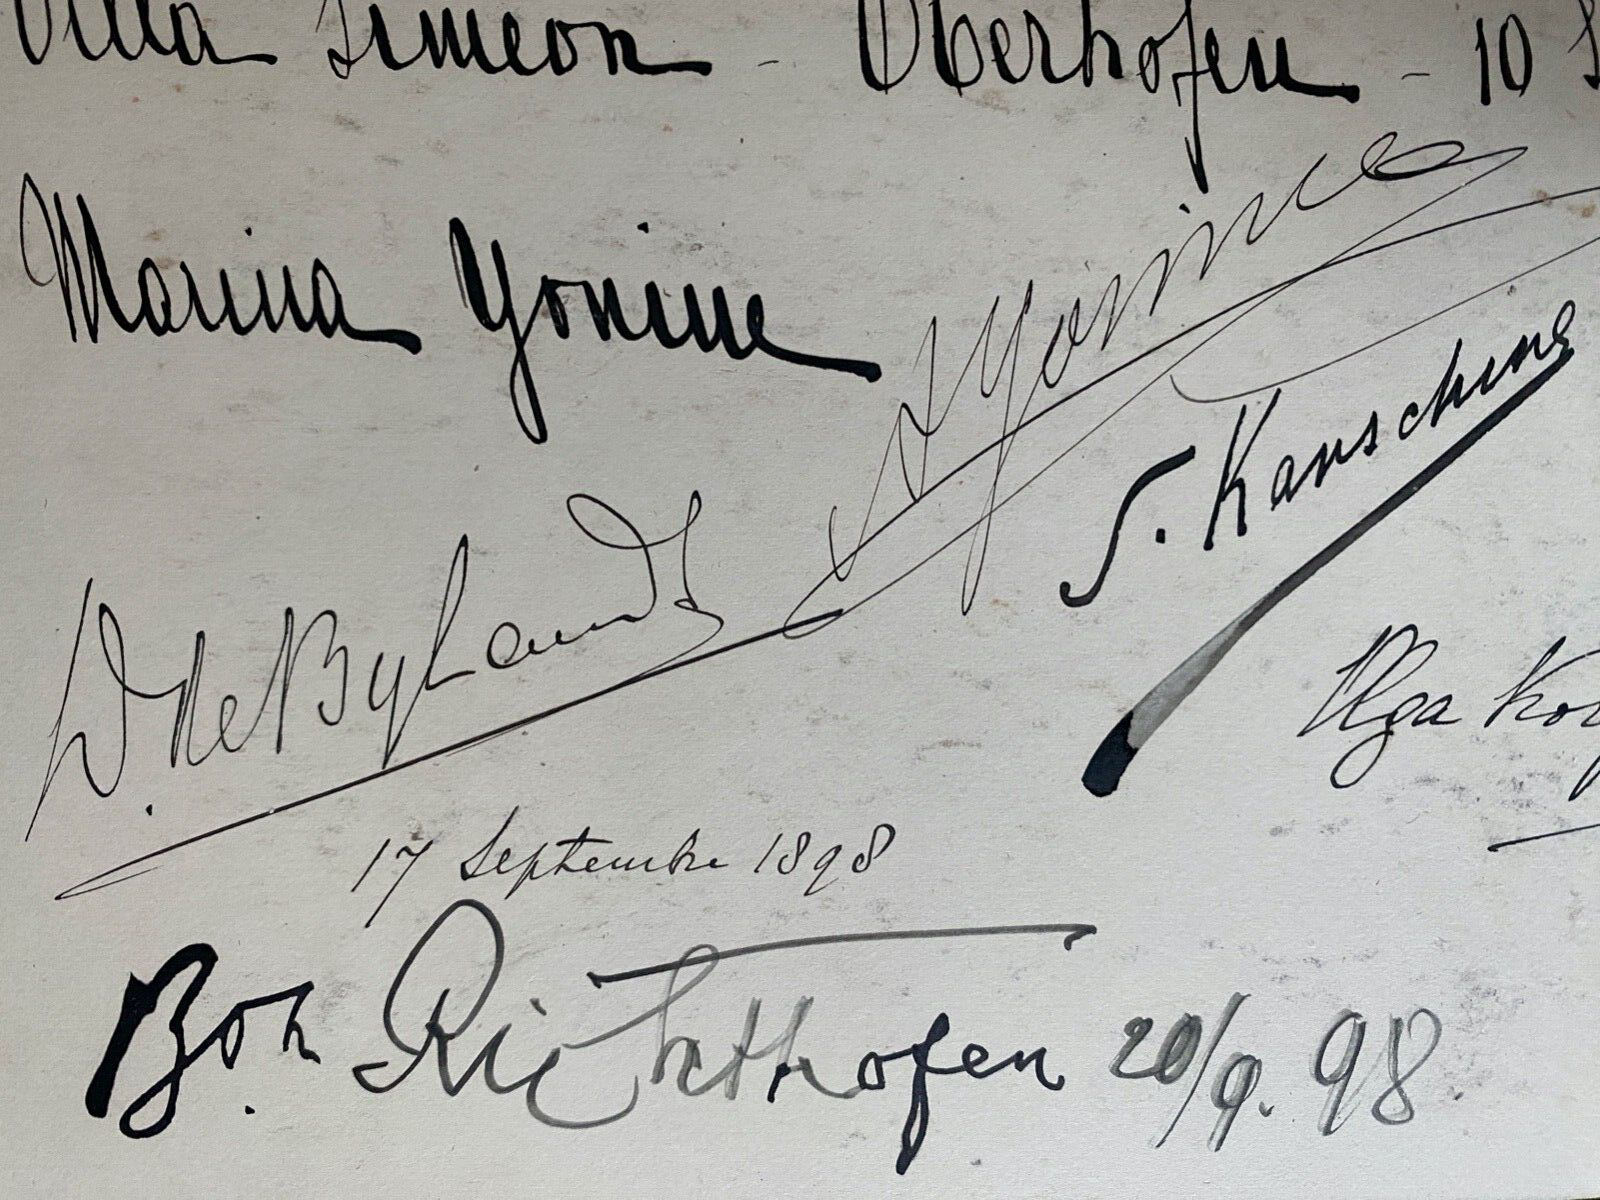 Villa Simeon - Oberhofen - 10
Marina Yonine
Yonine
S. Kanschine
W. de Bylandt
Olga
17 Septembre 1898
Bon Richthofen 20/9. 98.